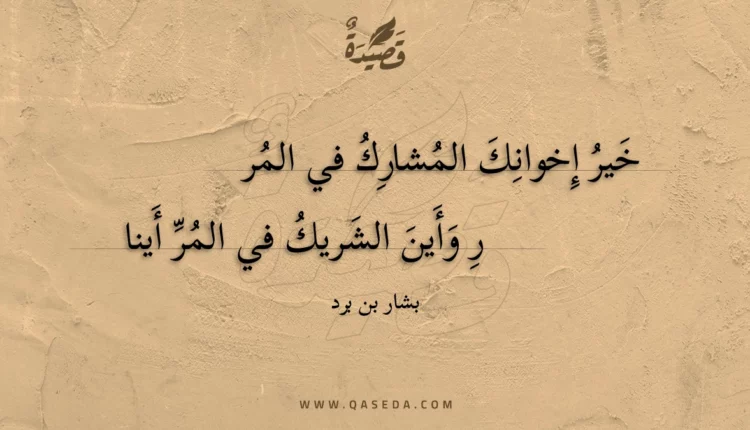 قَصِيدَةٌ
خَيرُ إِخوانِكَ المُشارِكُ في المُر
رِ وَأَينَ الشَريكُ في المُرِّ أَينا
بشار بن برد
WWW.QASEDA.COM